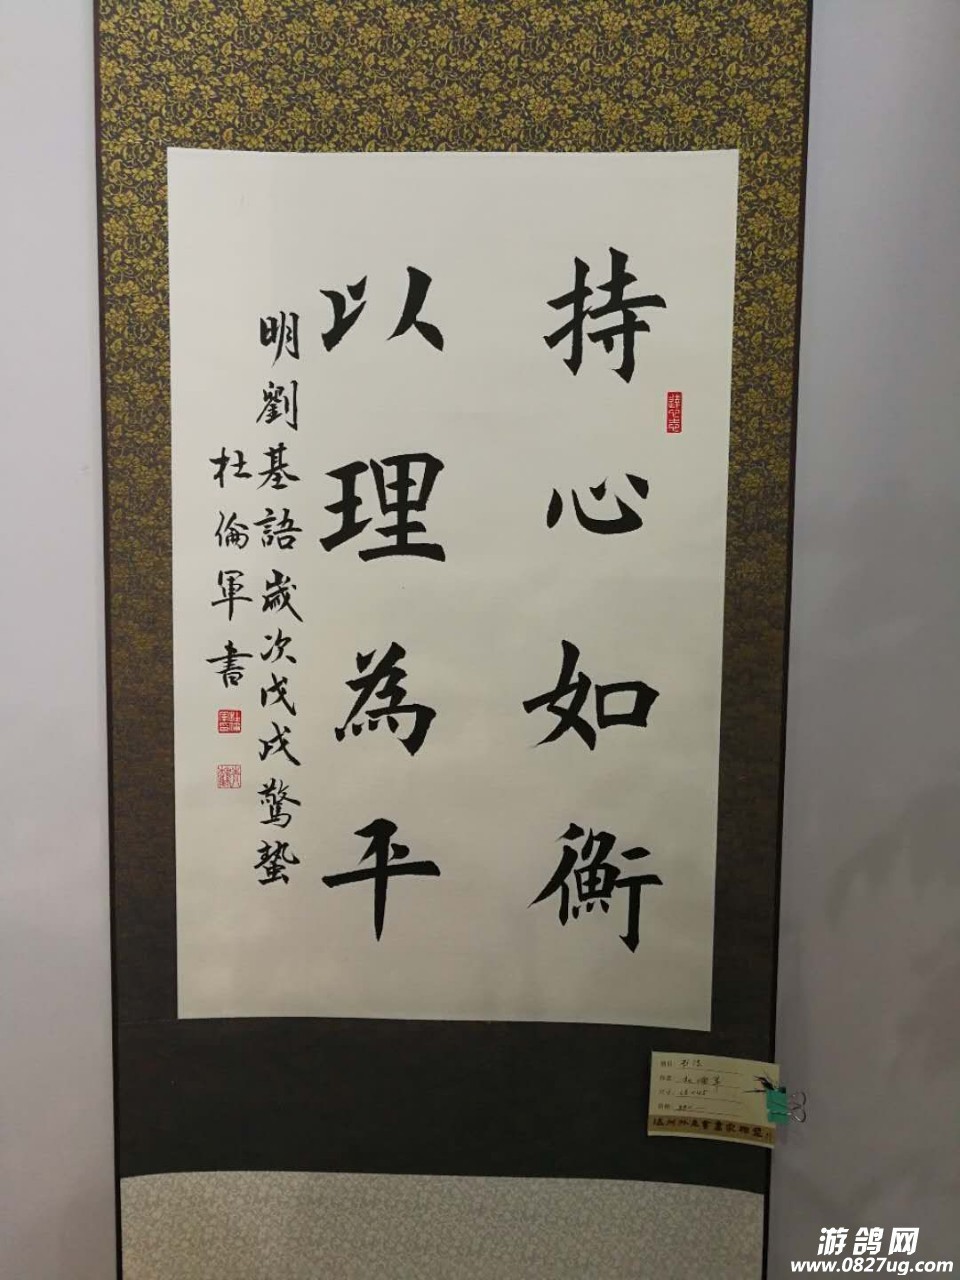 持心如衡
以理為平
明劉基語歲次戊戌驚蟄
杜倫軍書
游鸽网
www.0827ug.com